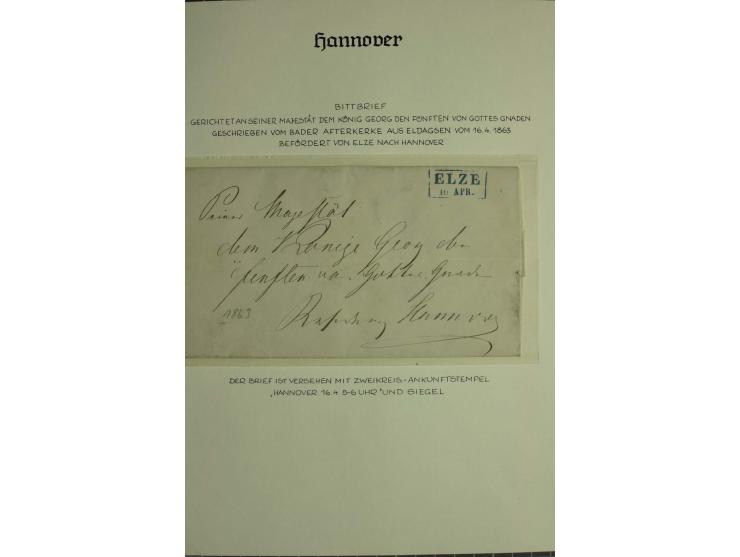 Hannover
BITTBRIEF
GERICHTET AN SEINER MAJESTÄT DEM KÖNIG GEORG DEN FÜNFTEN VON GOTTES GNADEN
GESCHRIEBEN VOM BADER AFTERKERKE AUS ELDAGSEN VOM 16.4.1863
BEFÖRDERT VON ELZE NACH HANNOVER
ELZE
16 APR.
Seiner Majestät
dem Könige Georg den
fünften von Gottes Gnaden
1863
Hannover
DER BRIEF IST VERSEHEN MIT ZWEIKREIS-ANKUNFTSTEMPEL
„HANNOVER 16.4. 5-6 UHR" UND SIEGEL